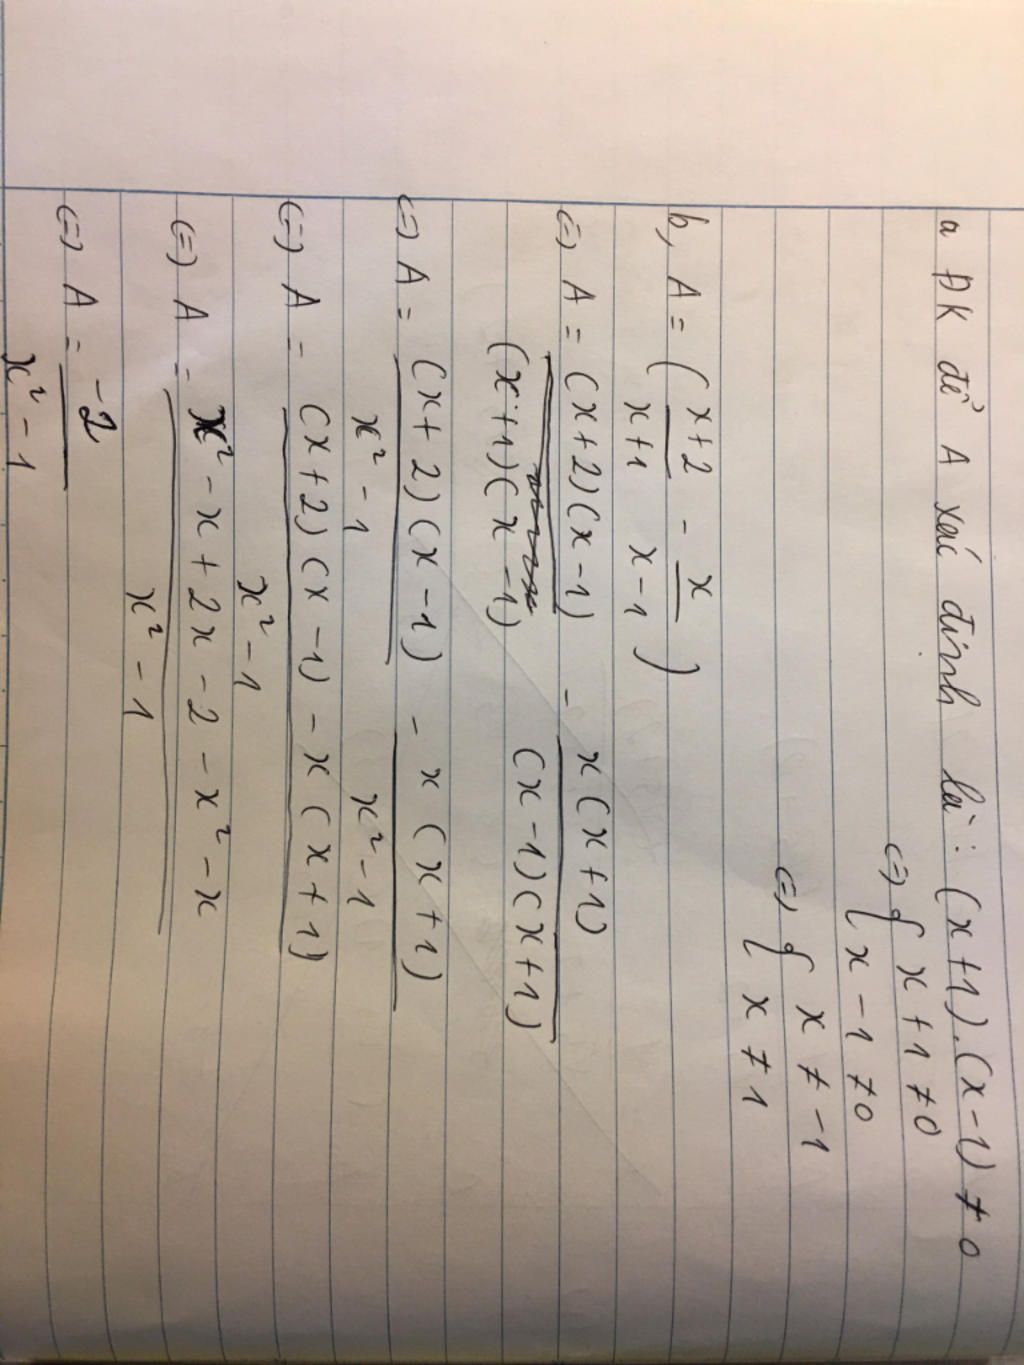 a ĐK để A xác định là : (x+1).(x-1) ≠ 0
(=) { x+1 ≠ 0
x - 1 ≠ 0
(=) { x ≠ -1
x ≠ 1
b, A = ( x+2 / x+1 - x / x-1 )
(=) A = (x+2)(x-1) / (x+1)(x-1) - x(x+1) / (x-1)(x+1)
(=) A = (x+2)(x-1) / x² - 1 - x(x+1) / x² - 1
(=) A = (x+2)(x-1) - x(x+1) / x² - 1
(=) A = x² - x + 2x - 2 - x² - x / x² - 1
(=) A = -2 / x² - 1